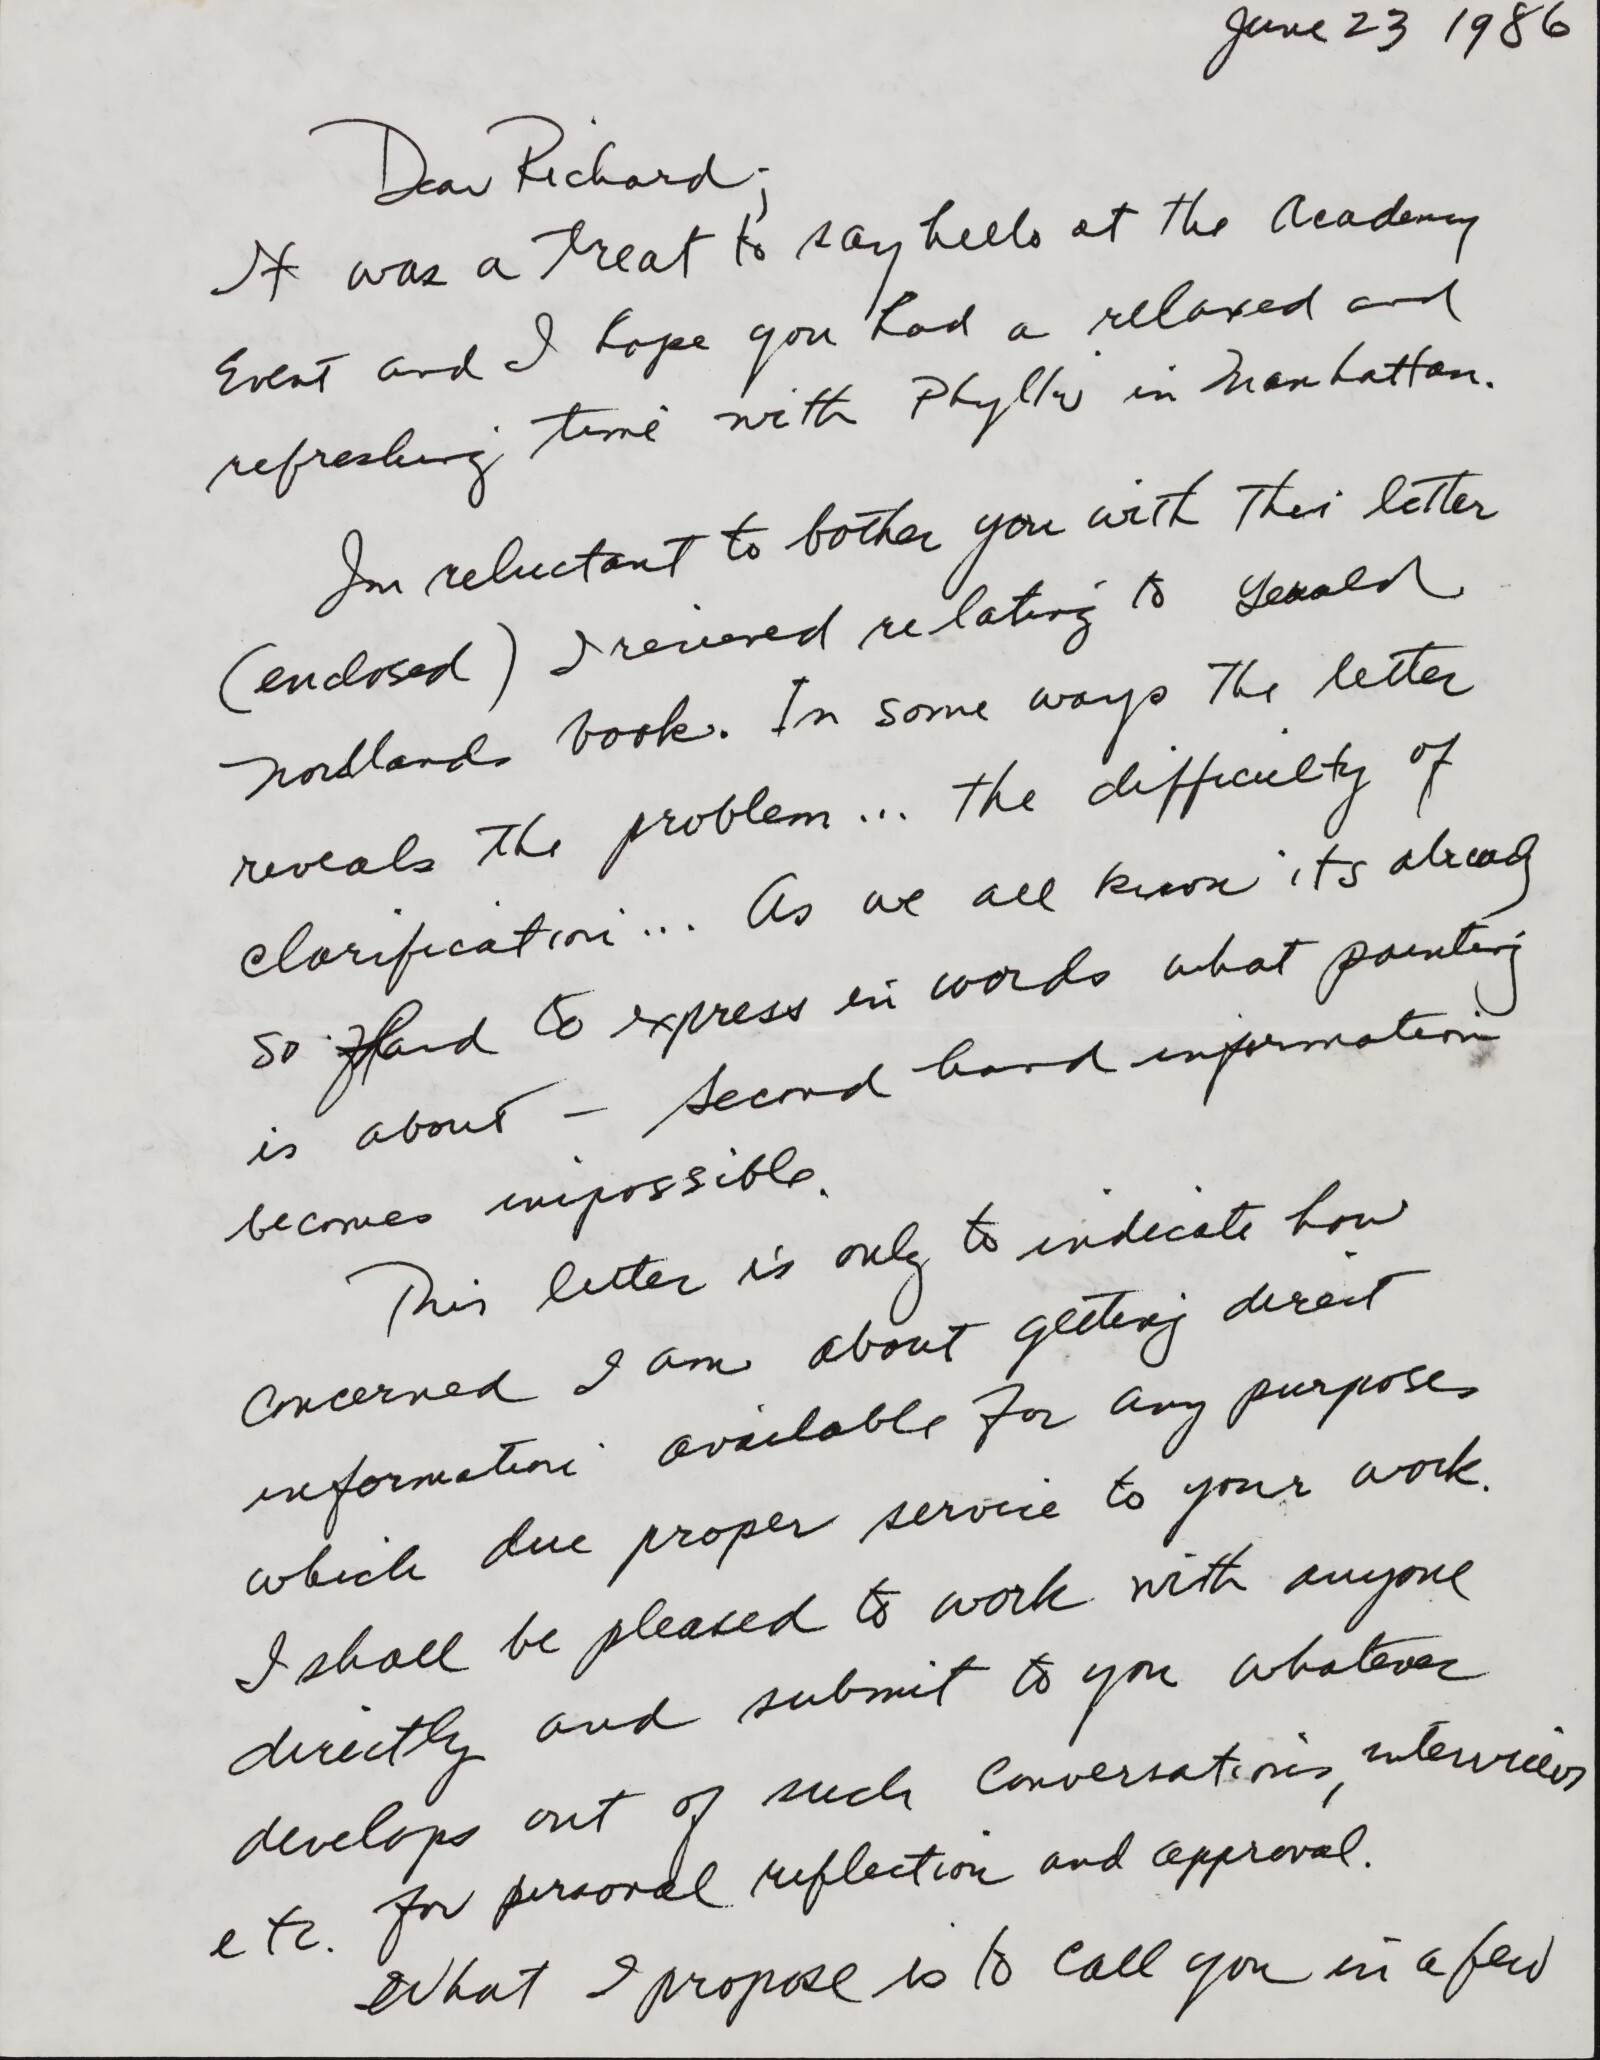 June 23 1986
Dear Richard;
It was a treat to say hello at the Academy
Event and I hope you had a relaxed and
refreshing time with Phyllis in Manhattan.
Im reluctant to bother you with this letter
(enclosed) I recieved relating to Gerald
Nordlands book. In some ways the letter
reveals the problem... the difficulty of
clarification... As we all know its already
so hard to express in words what painting
is about - second hand information
becomes impossible.
This letter is only to indicate how
concerned I am about getting direct
information available for any purposes
which due proper service to your work.
I shall be pleased to work with anyone
directly and submit to you whatever
develops out of such conversations, interviews
etc. for personal reflection and approval.
What I propose is to call you in a few